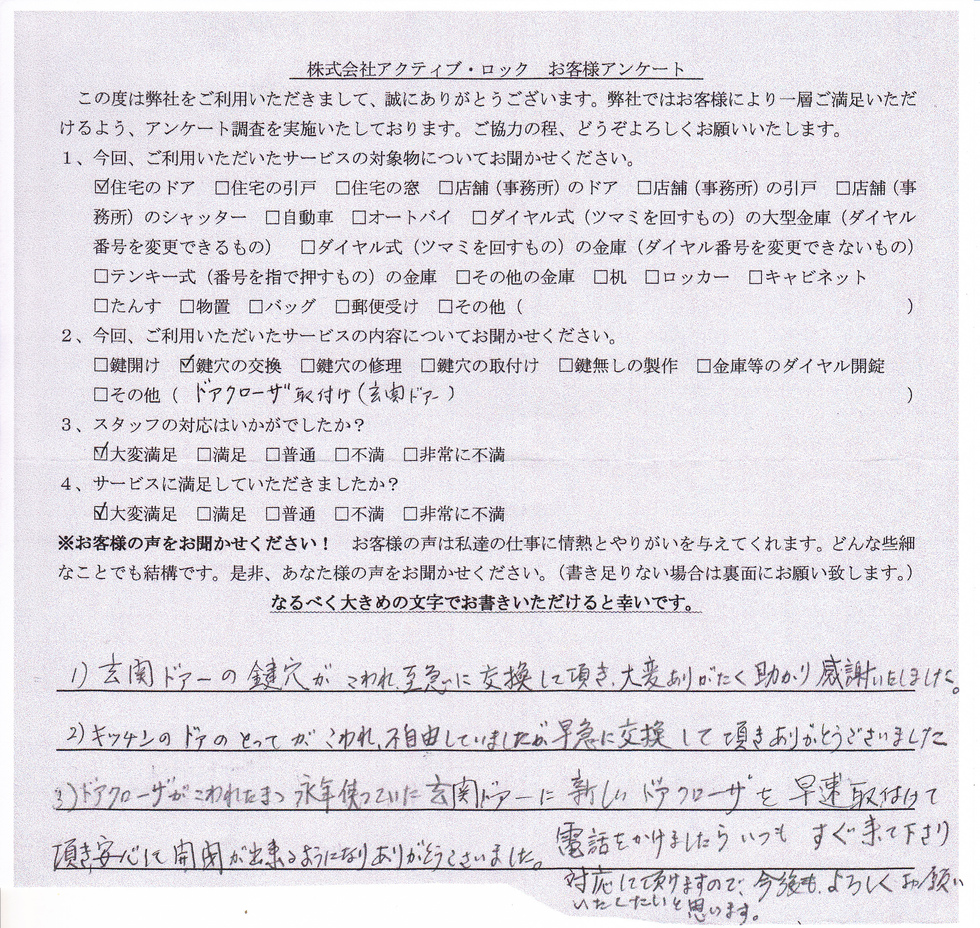 株式会社アクティブ・ロック　お客様アンケート
この度は弊社をご利用いただきまして、誠にありがとうございます。弊社ではお客様により一層ご満足いただ
けるよう、アンケート調査を実施いたしております。ご協力の程、どうぞよろしくお願いいたします。
1、今回、ご利用いただいたサービスの対象物についてお聞かせください。
☑住宅のドア　□住宅の引戸　□住宅の窓　□店舗（事務所）のドア　□店舗（事務所）の引戸　□店舗（事
務所）のシャッター　□自動車　□オートバイ　□ダイヤル式（ツマミを回すもの）の大型金庫（ダイヤル
番号を変更できるもの）　□ダイヤル式（ツマミを回すもの）の金庫（ダイヤル番号を変更できないもの）
□テンキー式（番号を指で押すもの）の金庫　□その他の金庫　□机　□ロッカー　□キャビネット
□たんす　□物置　□バッグ　□郵便受け　□その他（　　　　　　　　　　）
2、今回、ご利用いただいたサービスの内容についてお聞かせください。
□鍵開け　☑鍵穴の交換　□鍵穴の修理　□鍵穴の取付け　□鍵無しの製作　□金庫等のダイヤル開錠
□その他（ ドアクローザ取付け(玄関ドアー) ）
3、スタッフの対応はいかがでしたか？
☑大変満足　□満足　□普通　□不満　□非常に不満
4、サービスに満足していただきましたか？
☑大変満足　□満足　□普通　□不満　□非常に不満
※お客様の声をお聞かせください！　お客様の声は私達の仕事に情熱とやりがいを与えてくれます。どんな些細
なことでも結構です。是非、あなた様の声をお聞かせください。（書き足りない場合は裏面にお願い致します。）
なるべく大きめの文字でお書きいただけると幸いです。
1) 玄関ドアーの鍵穴がこわれ、至急に交換して頂き、大変ありがたく助かり感謝いたしました。
2) キッチンのドアのとってがこわれ、不自由していましたが、早急に交換して頂きありがとうございました
3) ドアクローザがこわれたまゝ永年使っていた玄関ドアーに新しいドアクローザを早速取付けて
頂き、安心して開閉が出来るようになりありがとうございました。
電話をかけましたらいつもすぐ来て下さり
対応して頂けますので、今後も、よろしくお願い
いたしたいと思います。